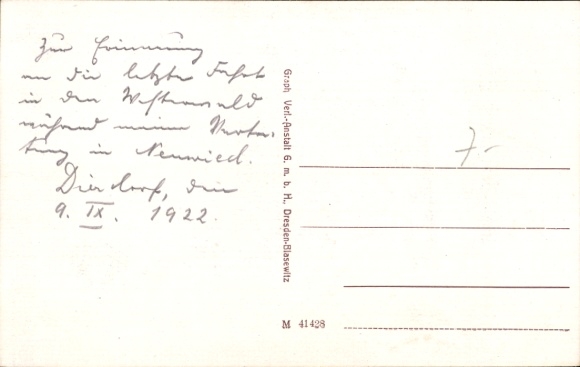 Zur Erinnerung
an die letzte Fahrt
in den Westerwald
während meiner Vertre-
tung in Neuwied.
Dierdorf, den
9. IX. 1922.
Graph. Verl.-Anstalt G. m. b. H., Dresden-Blasewitz
7.-
M 41428